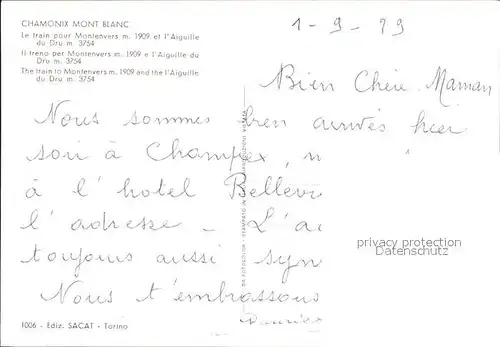 CHAMONIX MONT BLANC
Le train pour Montenvers m. 1909 et l'Aiguille
du Dru m. 3754
Il treno per Montenvers m. 1909 e l'Aiguille du
Dru m. 3754
The train to Montenvers m. 1909 and the l'Aiguille
du Dru m. 3754
1-9-79
Bien Chère Maman
Nous sommes bien arrivés hier
soir à Champex,
à l'hotel
l'adresse - L'
toujours aussi
Nous t'embrassons
privacy protection
Datenschutz
1006 - Ediz. SACAT - Torino